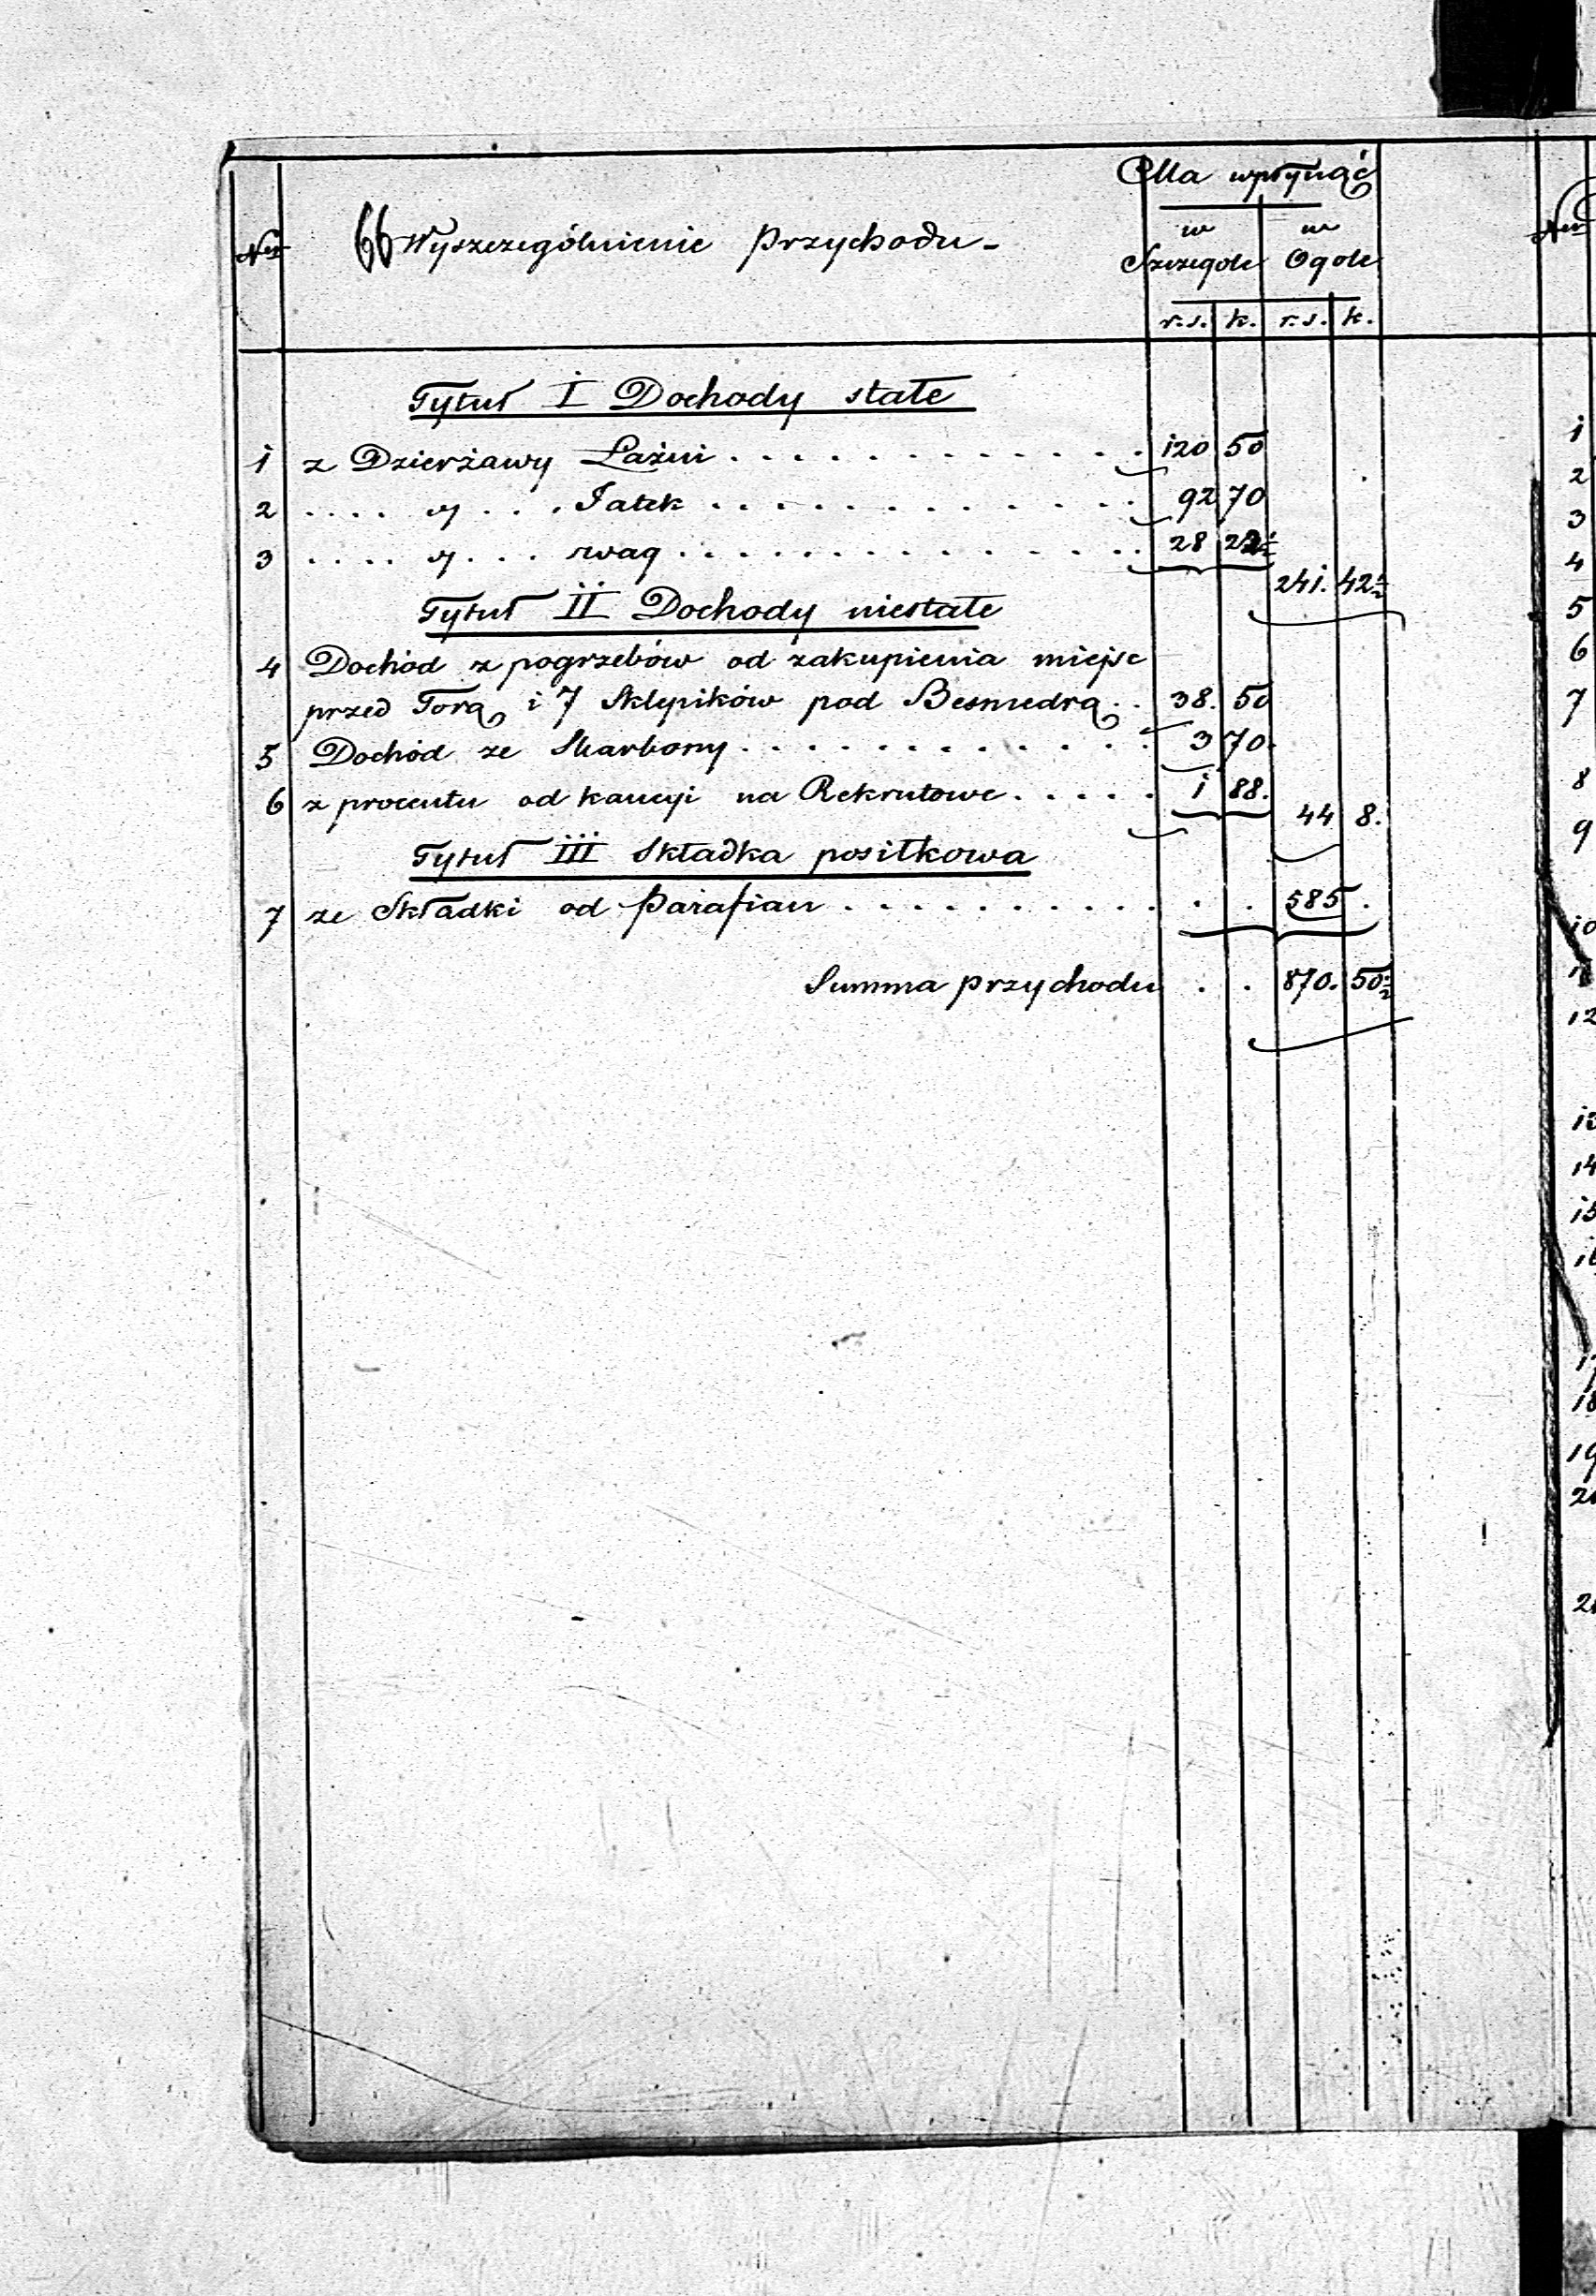 Ma wpłynąć
w w
Nr 66 Wyszczególnienie Przychodu Szczegole Ogole
r.s. k. r.s. k.
Tytuł I Dochody stałe
1 z Dzierżawy Łaźni 120 50
2 „ Jatek 92 70
3 „ wag 28 22½
241. 42½
Tytuł II Dochody niestałe
4 Dochód z pogrzebów od zakupienia miejsc
przed Torą i 7 Sklepików pod Besmedrą 38. 50
5 Dochód ze Skarbony 3 70.
6 z procentu od kaucyi na Rekrutowe 1 88.
44 8.
Tytuł III Składka posiłkowa
7 ze Składki od Parafian 585 .
Summa przychodu . . 870. 50½